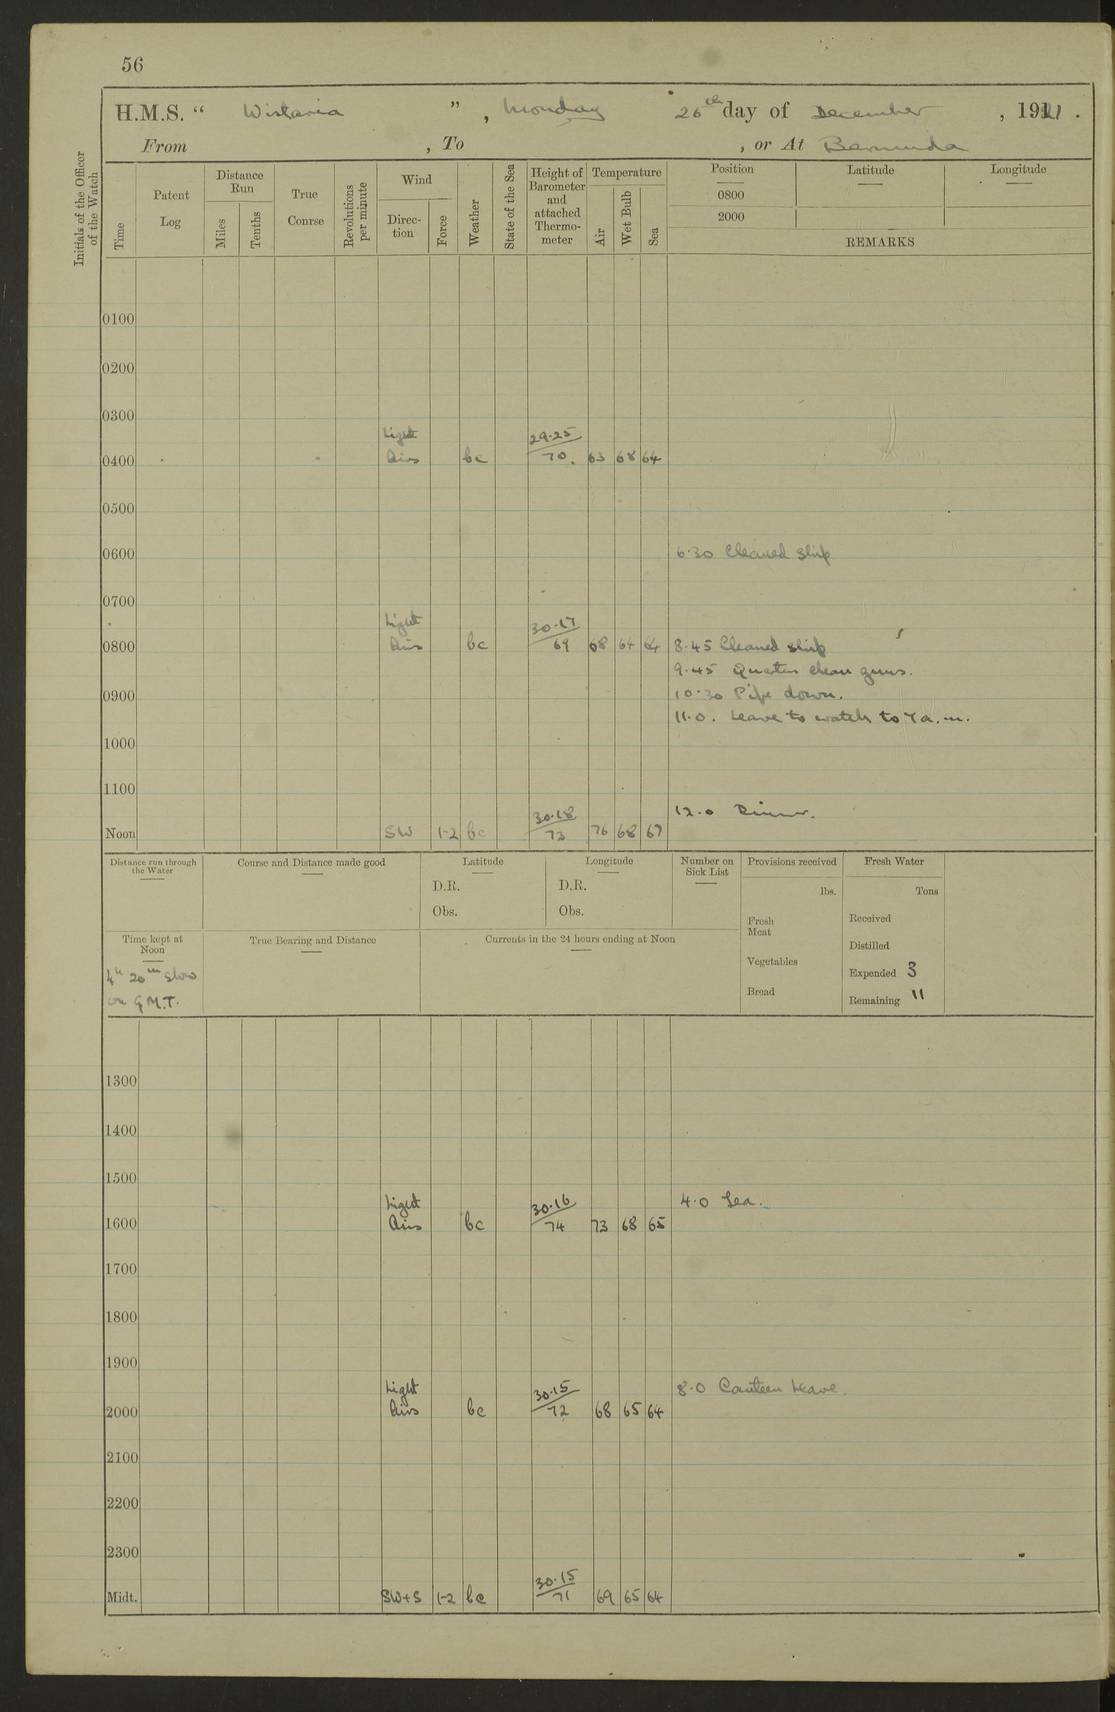 56
H.M.S. “ Wistaria ”, Monday 26th day of December, 1921.
From , To , or At Bermuda
Initials of the Officer of the Watch
Time
Patent Log
Distance Run
Miles
Tenths
True Course
Revolutions per minute
Wind
Direction
Force
Weather
State of the Sea
Height of Barometer and attached Thermometer
Temperature
Air
Wet Bulb
Sea
Position Latitude Longitude
0800
2000
REMARKS
0100
0200
0300
Light 29.25
0400 Airs bc 70 63 68 64
0500
0600 6.30 Cleaned ship
0700
Light 30.17
0800 Airs bc 69 68 64 64 8.45 Cleaned ship
9.45 Quarters clean guns.
0900 10.30 Pipe down.
11.0. Leave to watch to 7 a.m.
1000
1100
30.18 12.0 Dinner.
Noon SW 1-2 bc 73 76 68 67
Distance run through the Water
Course and Distance made good
Latitude
D.R.
Obs.
Longitude
D.R.
Obs.
Number on Sick List
Provisions received
lbs.
Fresh Meat
Vegetables
Bread
Fresh Water
Tons
Received
Distilled
Expended 3
Remaining 11
Time kept at Noon
4h 20m slow
on G.M.T.
True Bearing and Distance
Currents in the 24 hours ending at Noon
1300
1400
1500
Light 30.16 4.0 Tea.
1600 Airs bc 74 73 68 65
1700
1800
1900
Light 30.15 8.0 Canteen Leave.
2000 Airs bc 72 68 65 64
2100
2200
2300
30.15
Midt. SW+S 1-2 bc 71 69 65 64